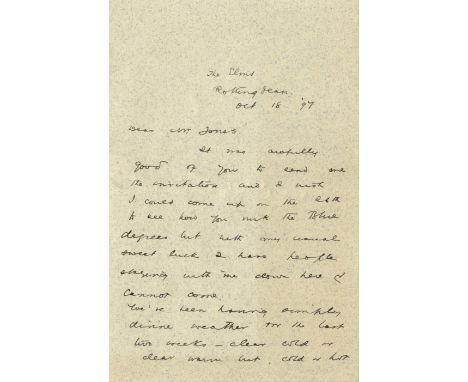 The Elms
Rottingdean.
Oct 18 '97
Dear Mr Jones
It was awfully
good of you to send me
the invitation and I wish
I could come up on the 26th
to see how you work the Blue
degrees but with my usual
sweet luck I have people
staying with me down here &
cannot come.
We've been having simply
divine weather for the last
two weeks - clear cold or
clear warm but cold or hot